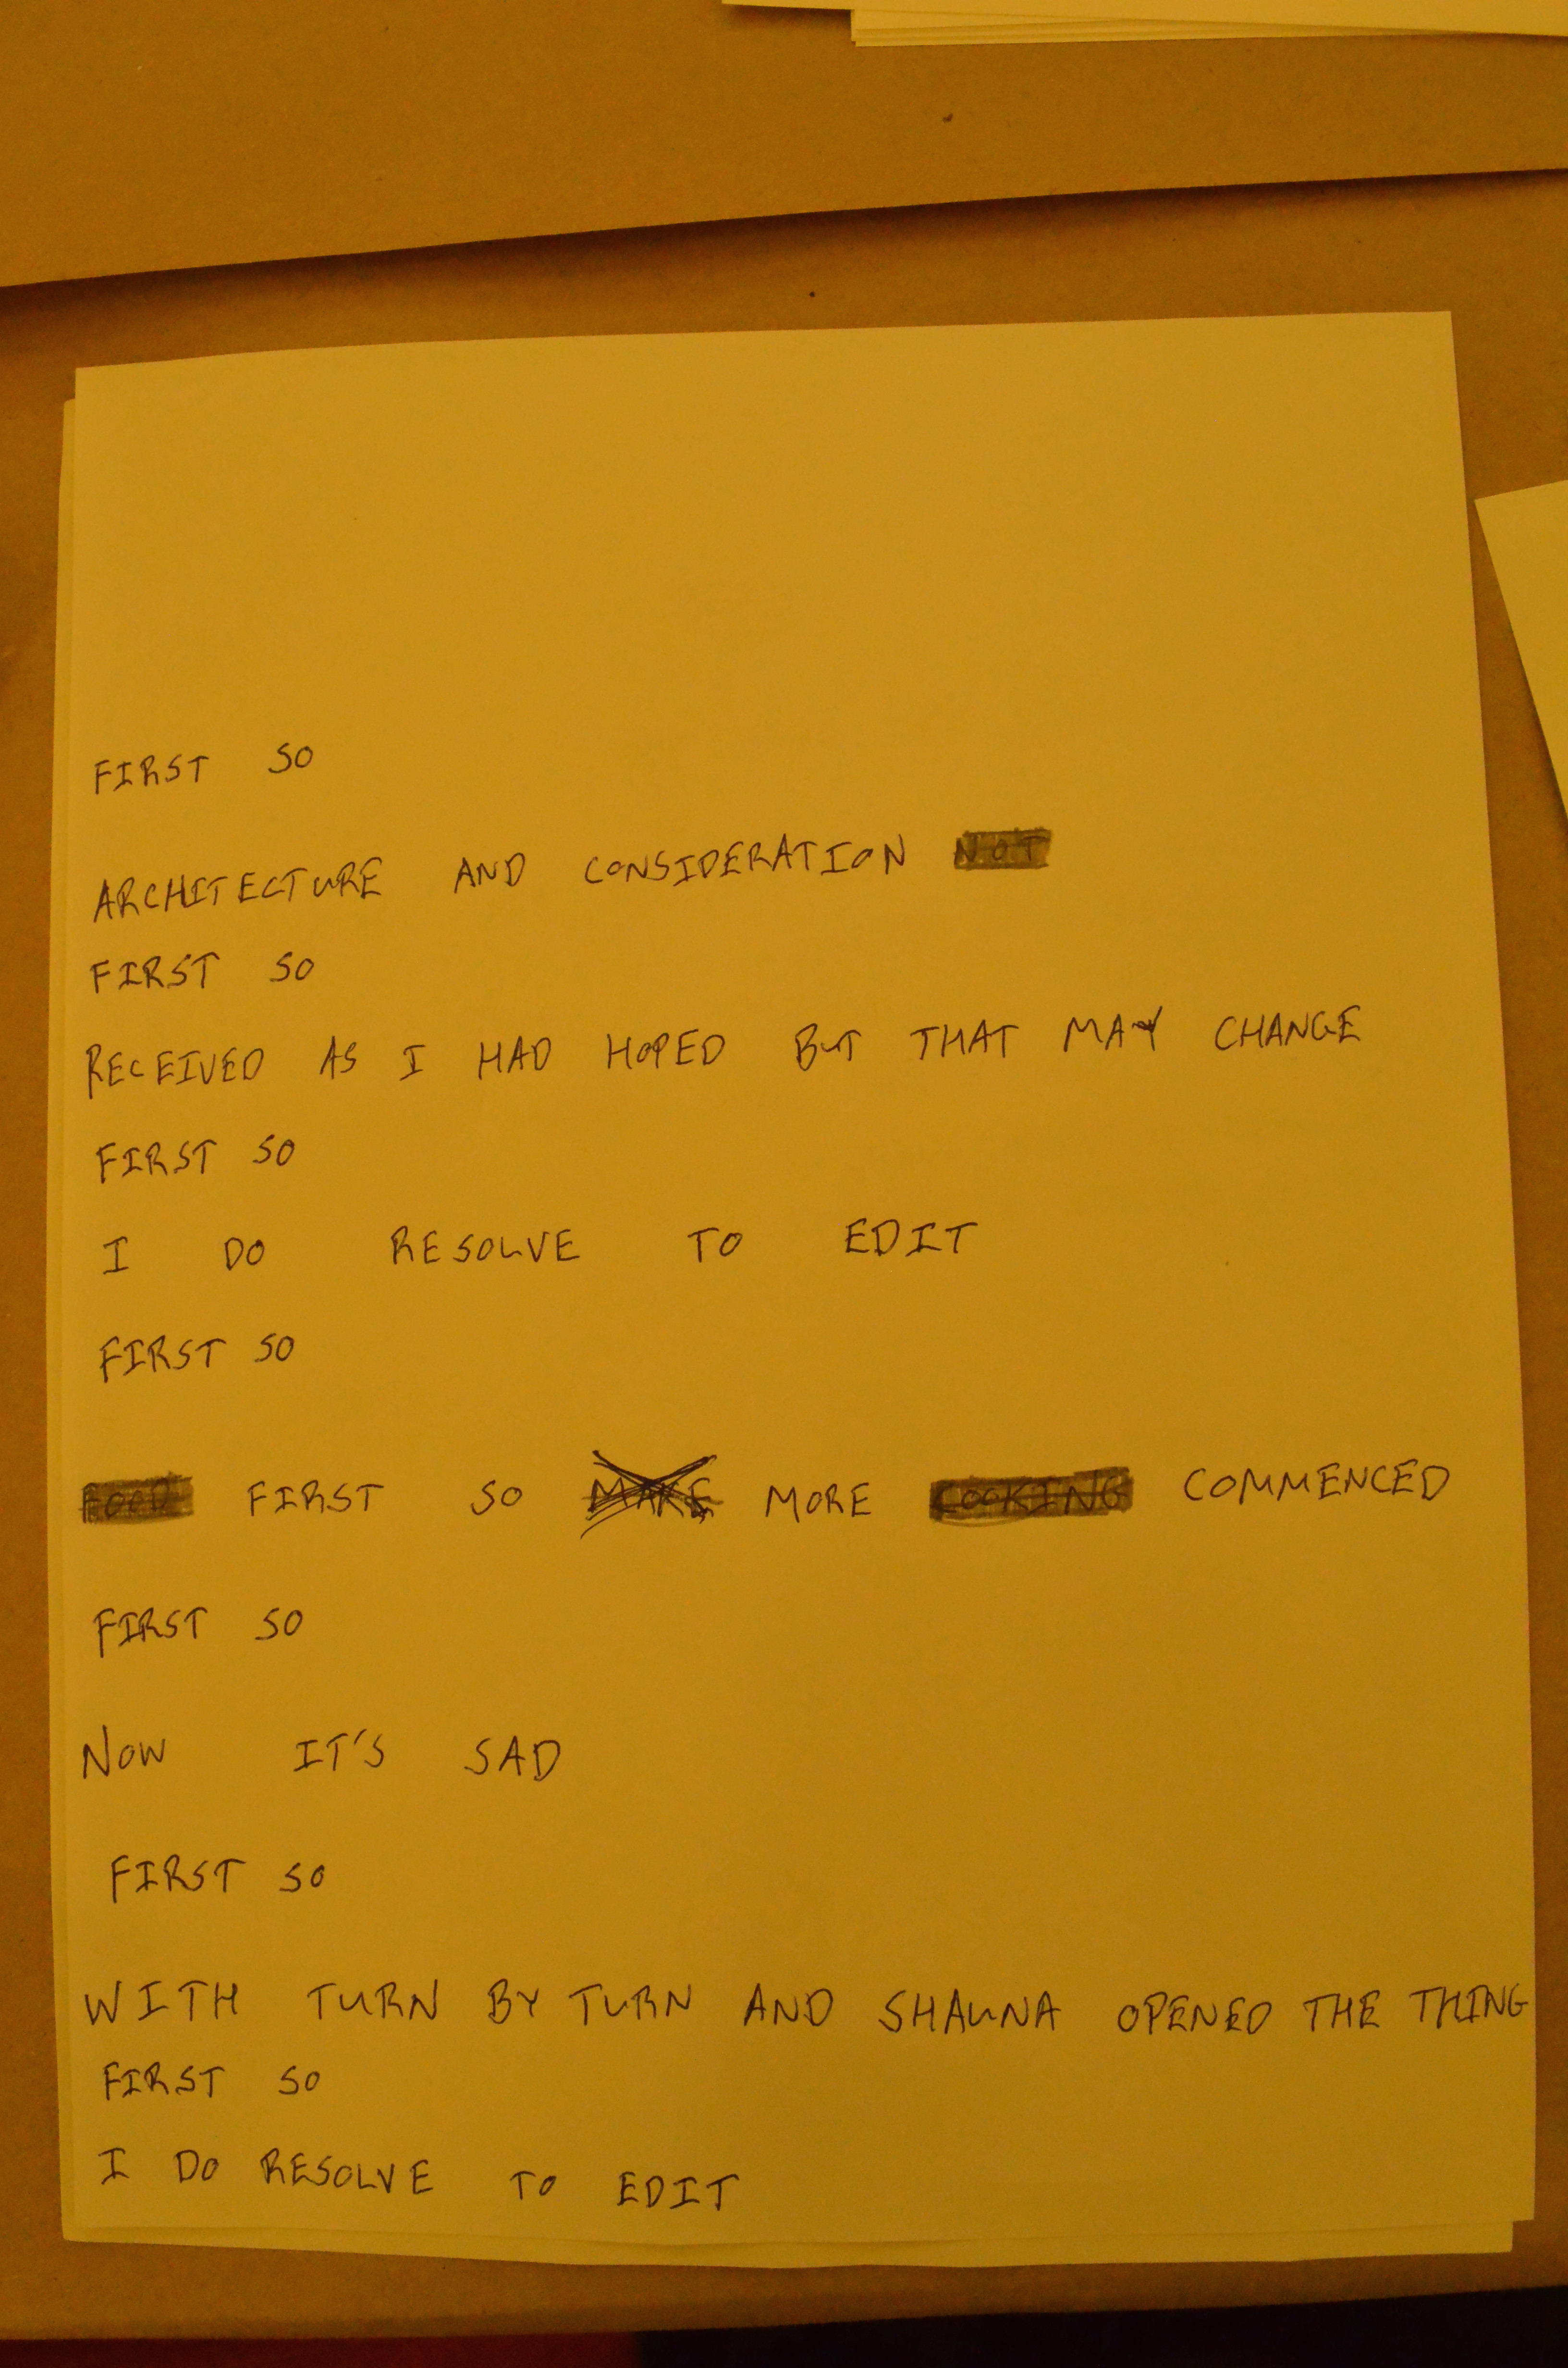 FIRST SO
ARCHITECTURE AND CONSIDERATION NOT
FIRST SO
RECEIVED AS I HAD HOPED BUT THAT MAY CHANGE
FIRST SO
I DO RESOLVE TO EDIT
FIRST SO
FOOD FIRST SO MAKE MORE COOKING COMMENCED
FIRST SO
NOW IT'S SAD
FIRST SO
WITH TURN BY TURN AND SHAUNA OPENED THE THING
FIRST SO
I DO RESOLVE TO EDIT